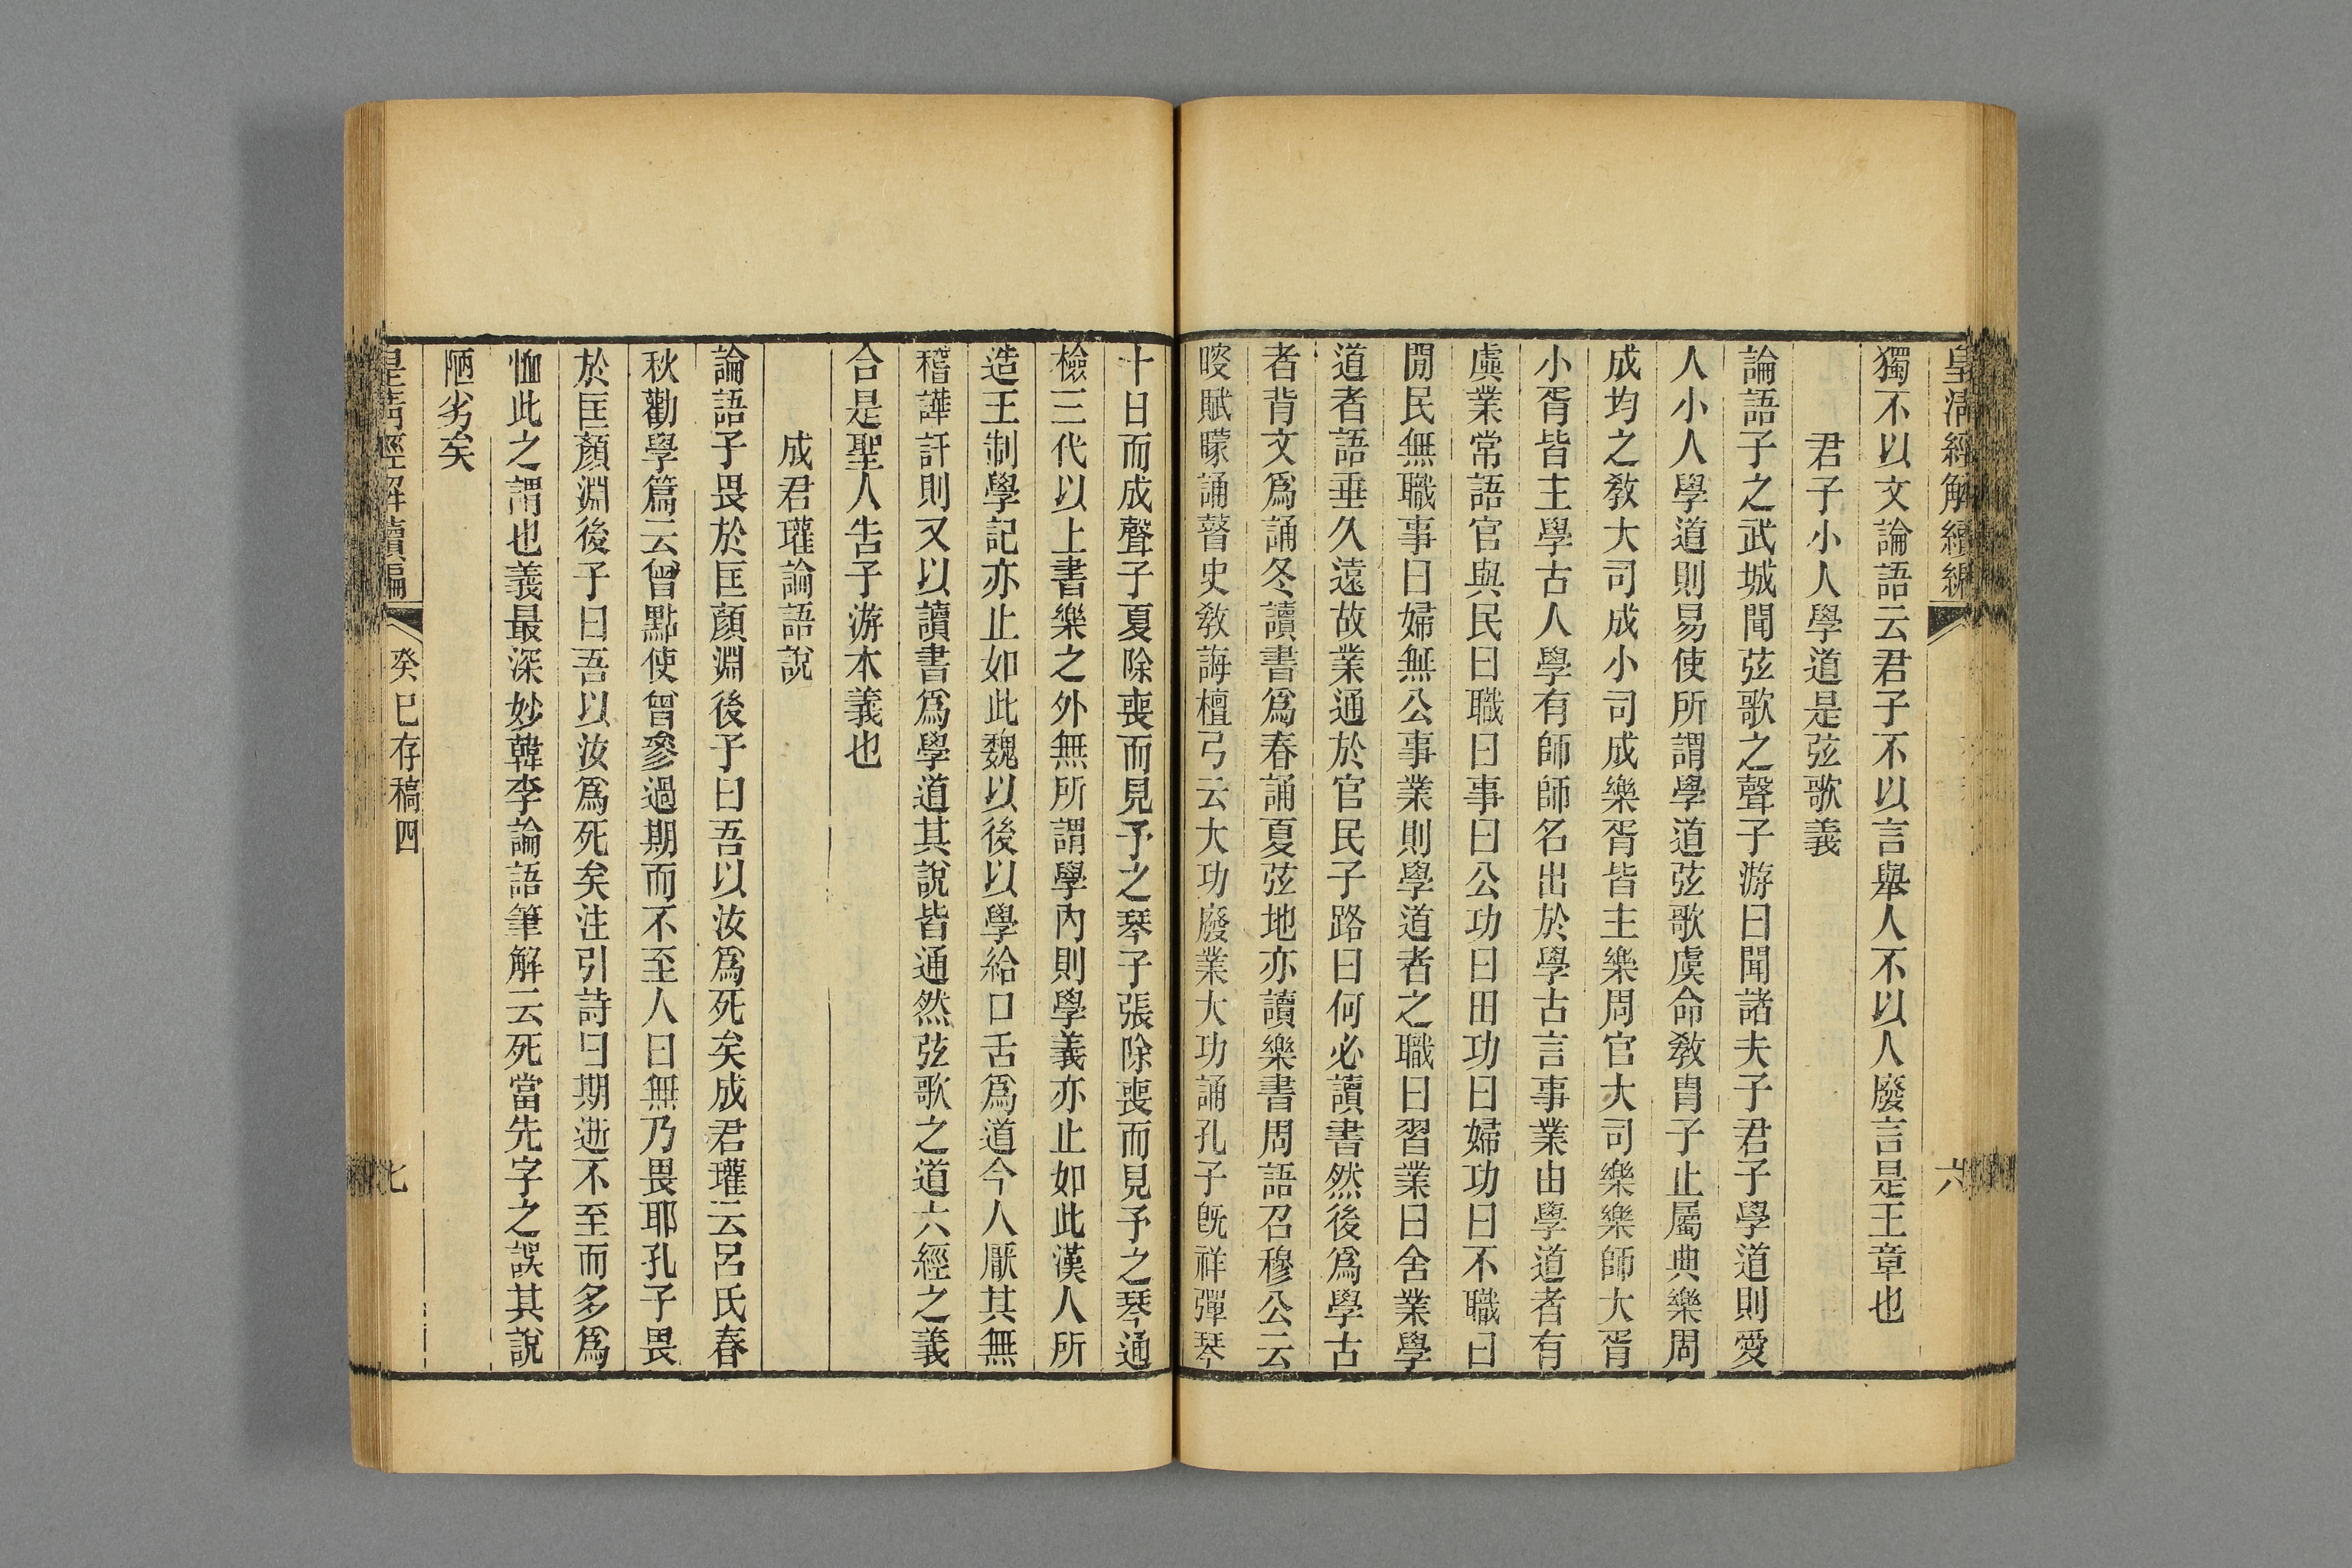 皇清經解續編
六
獨不以文論語云君子不以言舉人不以人廢言是王章也
君子小人學道是弦歌義
論語子之武城聞弦歌之聲子游曰聞諸夫子君子學道則愛
人小人學道則易使所謂學道弦歌虞命教胄子止屬典樂周
成均之教大司成小司成樂胥皆主樂周官大司樂樂師大胥
小胥皆主學古人學有師師名出於學古言事業由學道者有
虞業常語官與民曰職曰事曰公功曰田功曰婦功曰不職曰
閒民無職事曰婦無公事業則學道者之職曰習業曰舍業學
道者語垂久遠故業通於官民子路曰何必讀書然後爲學古
者背文爲誦冬讀書爲春誦夏弦地亦讀樂書周語召穆公云
㖟賦矇誦瞽史教誨檀弓云大功廢業大功誦孔子旣祥彈琴
十日而成聲子夏除喪而見予之琴子張除喪而見予之琴通
檢三代以上書樂之外無所謂學內則學義亦止如此漢人所
造王制學記亦止如此魏以後以學給口舌爲道今人厭其無
稽譁訐則又以讀書爲學道其說皆通然弦歌之道六經之義
合是聖人告子游本義也
成君瓘論語說
論語子畏於匡顏淵後子曰吾以汝爲死矣成君瓘云呂氏春
秋勸學篇云曾點使曾參過期而不至人曰無乃畏耶孔子畏
於匡顏淵後子曰吾以汝爲死矣注引詩曰期逝不至而多爲
恤此之謂也義最深妙韓李論語筆解云死當先字之誤其說
陋劣矣
皇清經解續編
癸巳存稿四
七